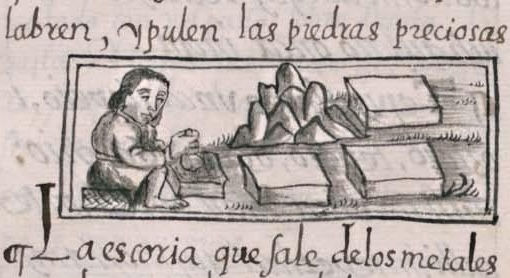 labren, y pulen las piedras preciosas
¶ La escoria que sale delos metales